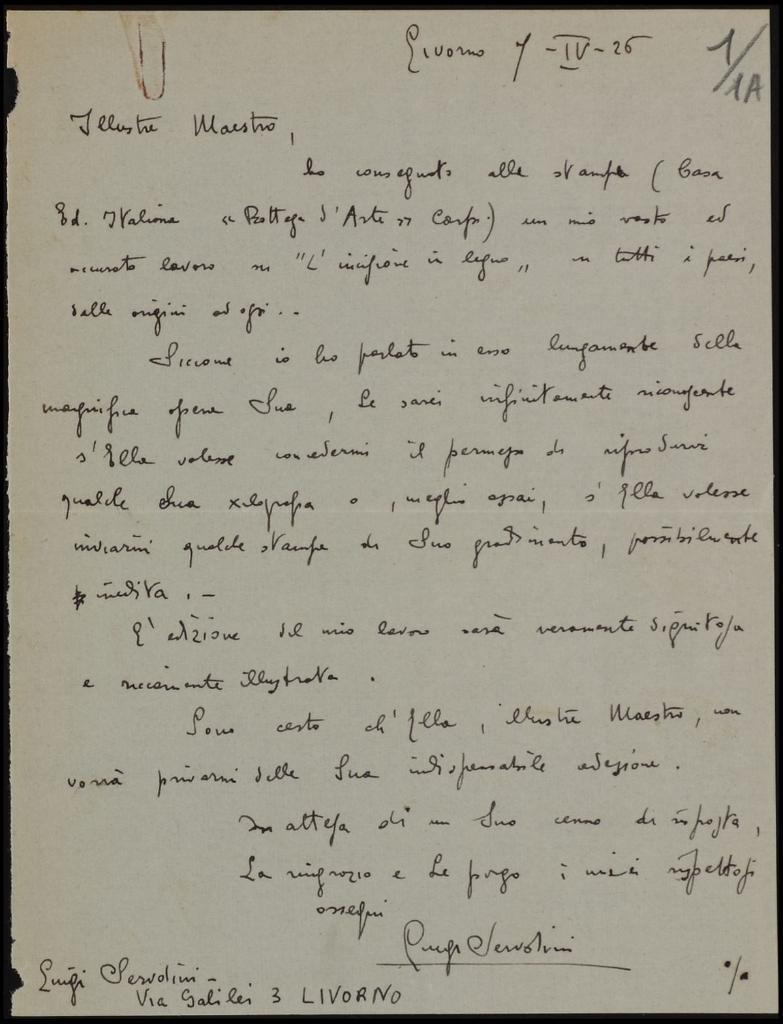 Livorno 7-IV-26
1/1A
Illustre Maestro,
ho consegnato alle stampe (Casa
Ed. Italiana «Bottega d'Arte» Carpi) un mio vasto ed
accurato lavoro su "L'incisione in legno„ in tutti i paesi,
dalle origini ad oggi..
Siccome io ho parlato in esso lungamente della
magnifica opera Sua, Le sarei infinitamente riconoscente
s'Ella volesse concedermi il permesso di riprodurvi
qualche Sua xilografia o, meglio assai, s'Ella volesse
inviarmi qualche stampa di Suo gradimento, possibilmente
inedita.–
L'edizione del mio lavoro sarà veramente dignitosa
e riccamente illustrata.
Sono certo ch'Ella, illustre Maestro, non
vorrà privarmi della Sua indispensabile adesione.
In attesa di un Suo cenno di risposta,
La ringrazio e Le porgo i miei rispettosi
ossequi
Luigi Servolini
Luigi Servolini–
Via Galilei 3 LIVORNO
./.